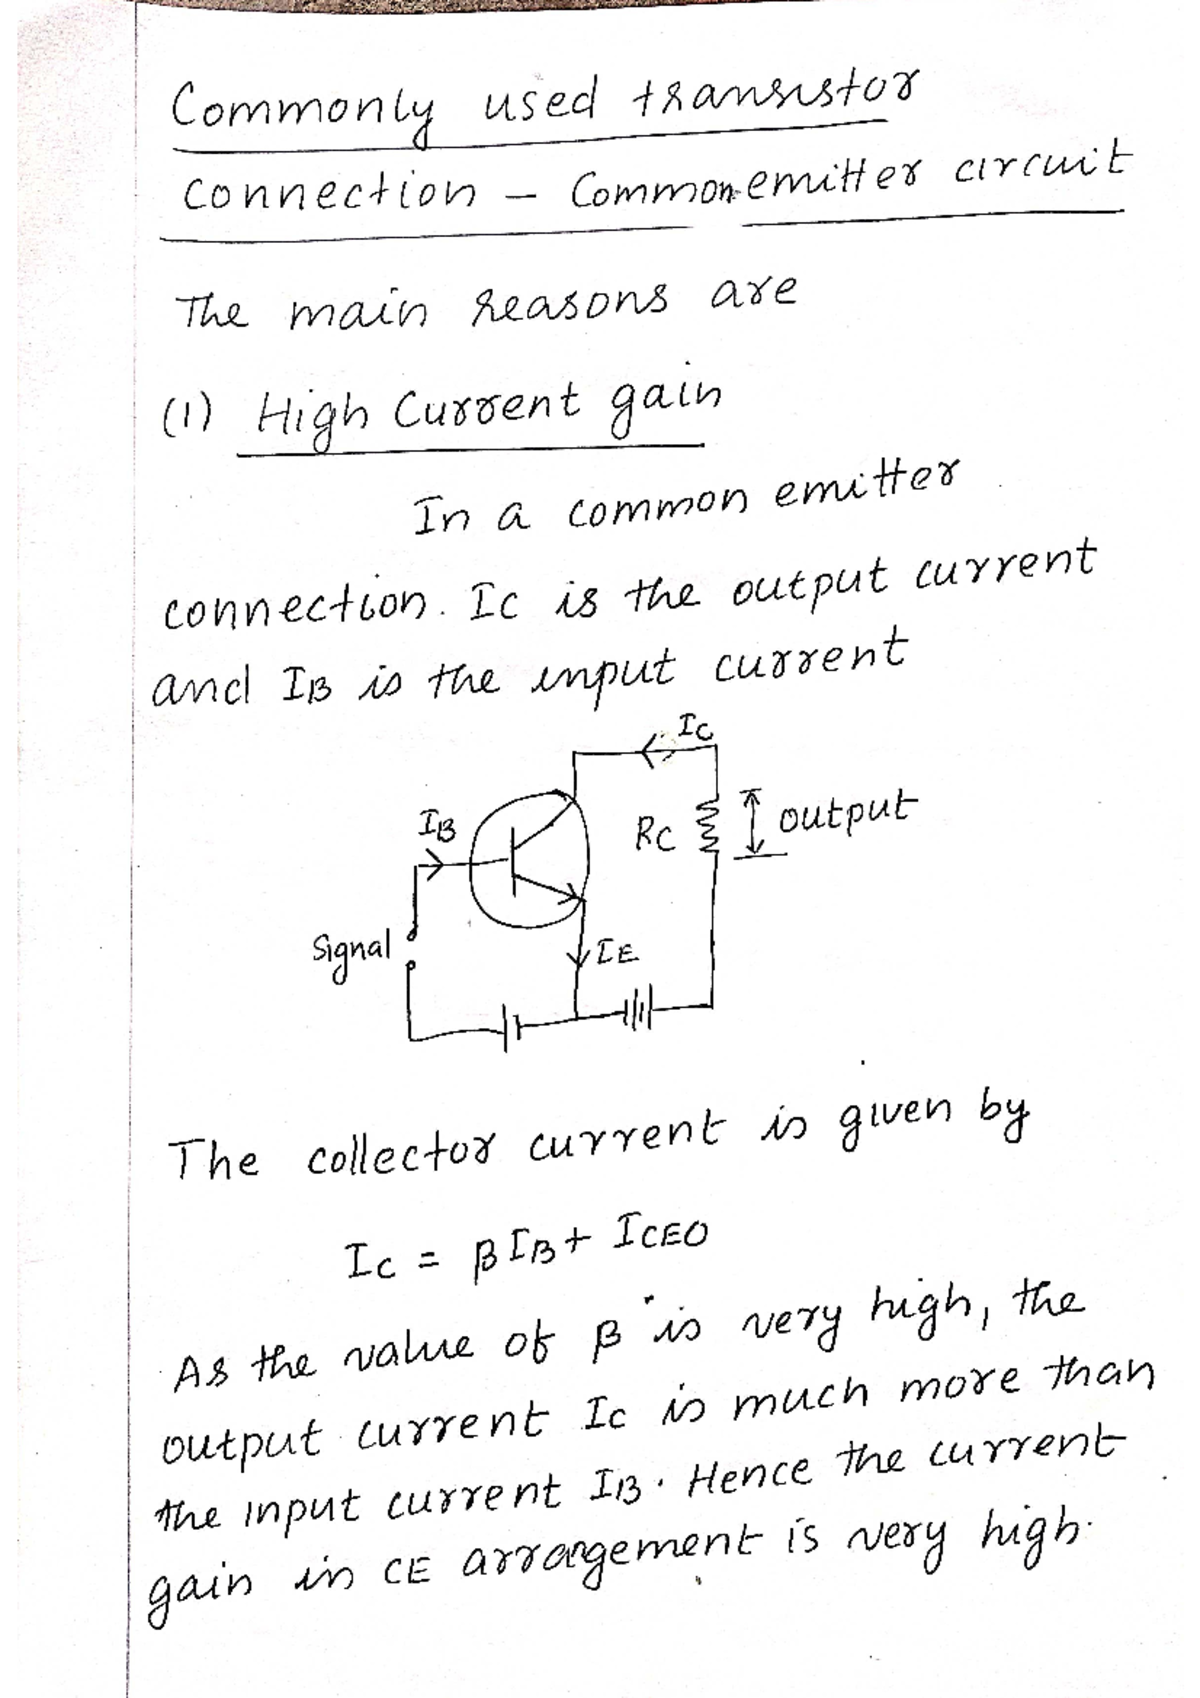 Commonly used transistor
connection - Common emitter circuit
The main reasons are
(1) High Current gain
In a common emitter
connection. IC is the output current
and IB is the input current
IC
IB
RC
output
Signal
IE
The collector current is given by
IC = βIB + ICEO
As the value of β is very high, the
output current IC is much more than
the input current IB. Hence the current
gain in CE arrangement is very high.